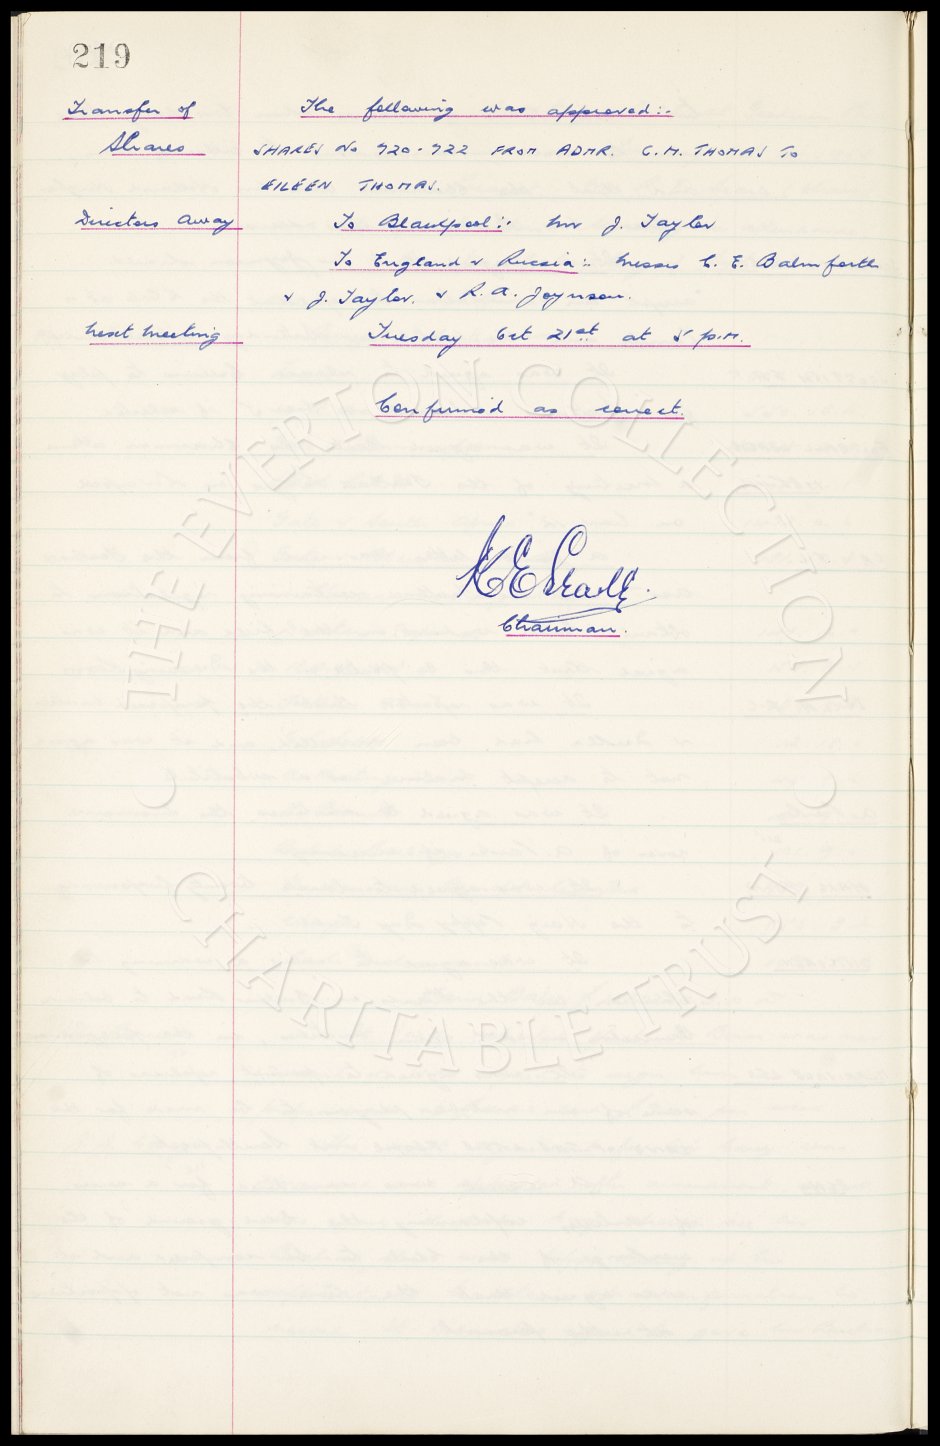 219
Transfer of Shares
The following was approved:-
SHARES No 720-722 FROM ADMR. C.M. THOMAS TO
EILEEN THOMAS.
Directors Away
To Blackpool:- Mr J. Taylor
To England v Russia:- Messrs C. E. Balmforth
& J. Taylor. & R. A. Joynson.
Next Meeting
Tuesday Oct 21st at 5 p.m.
Confirmed as correct.
Chairman.
THE EVERTON COLLECTION
CHARITABLE TRUST